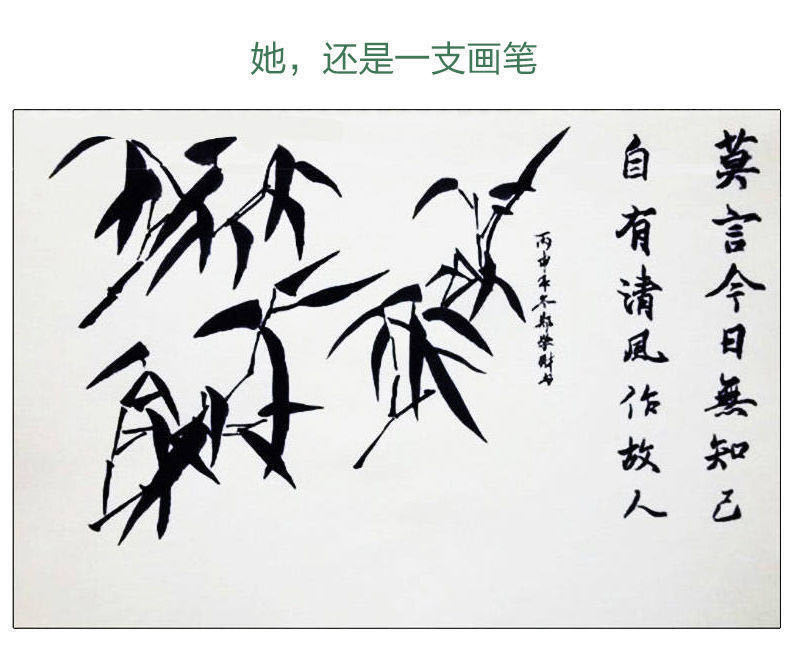 她，还是一支画笔
莫言今日無知己
自有清风作故人
丙申年冬郑